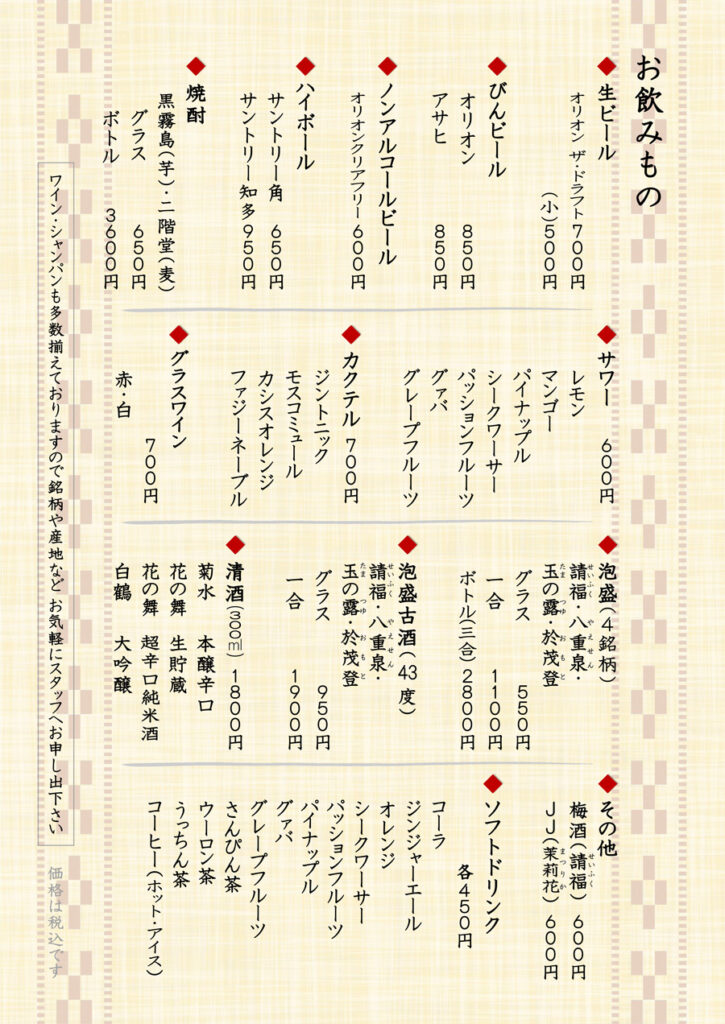 お飲みもの
◆生ビール
オリオン ザ・ドラフト 700円
(小)500円
◆びんビール
オリオン 850円
アサヒ 850円
◆ノンアルコールビール
オリオンクリアフリー 600円
◆ハイボール
サントリー角 650円
サントリー知多 950円
◆焼酎
黒霧島(芋)・二階堂(麦)
グラス 650円
ボトル 3600円
◆サワー 600円
レモン
マンゴー
パイナップル
シークワーサー
パッションフルーツ
グァバ
グレープフルーツ
◆カクテル 700円
ジントニック
モスコミュール
カシスオレンジ
ファジーネーブル
◆グラスワイン
700円
赤・白
◆泡盛(4銘柄)
請福・八重泉・
せいふく やえせん
玉の露・於茂登
たま つゆ おもと
グラス 550円
一合 1100円
ボトル(三合) 2800円
◆泡盛古酒(43度)
請福・八重泉・
せいふく やえせん
玉の露・於茂登
たま つゆ おもと
グラス 950円
一合 1900円
◆清酒(300㎖) 1800円
菊水 本醸辛口
花の舞 生貯蔵
花の舞 超辛口純米酒
白鶴 大吟醸
◆その他
梅酒(請福) 600円
せいふく
JJ(茉莉花) 600円
まつりか
◆ソフトドリンク
各450円
コーラ
ジンジャーエール
オレンジ
シークワーサー
パッションフルーツ
パイナップル
グァバ
グレープフルーツ
さんぴん茶
ウーロン茶
うっちん茶
コーヒー(ホット・アイス)
ワイン・シャンパンも多数揃えておりますので銘柄や産地など お気軽にスタッフへお申し出下さい
価格は税込です